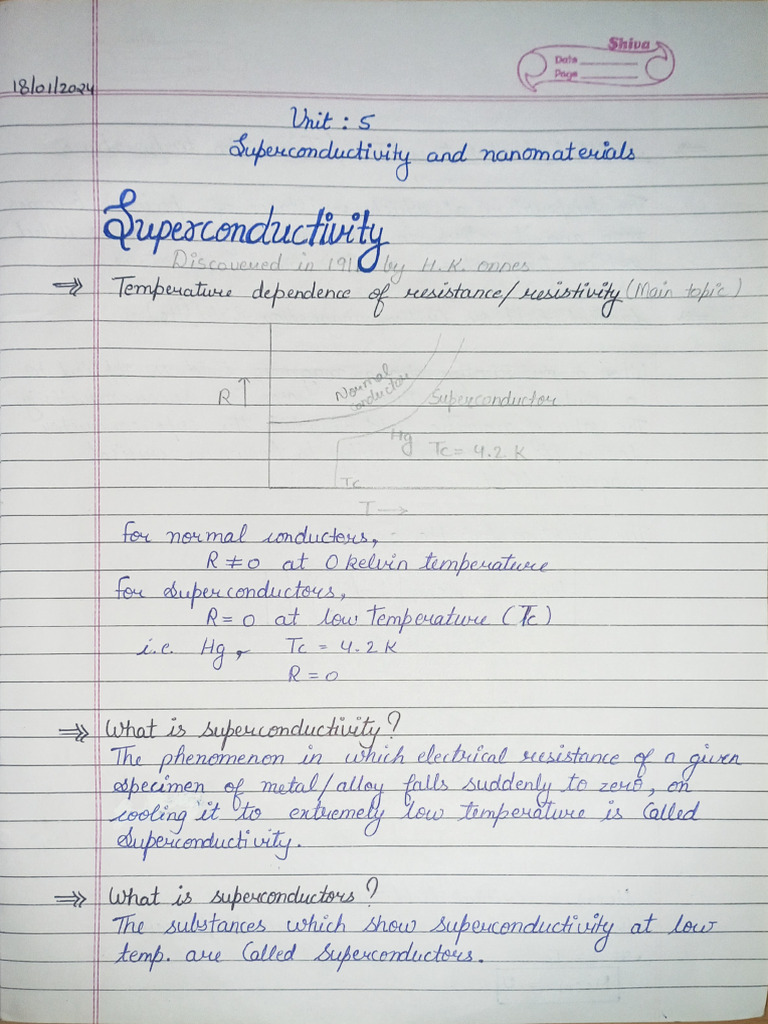 Shiva
Date
Page
18/01/2024
Unit : 5
Superconductivity and nanomaterials
Superconductivity
Discovered in 1911 by H.K. onnes
⇒ Temperature dependence of resistance/resistivity (Main topic)
R ↑
Normal
conductor
Superconductor
Hg
Tc = 4.2 K
Tc
T →
for normal conductors,
R ≠ 0 at 0 kelvin temperature
for superconductors,
R = 0 at low Temperature (Tc)
i.e. Hg, Tc = 4.2 K
R = 0
⇒ What is superconductivity?
The phenomenon in which electrical resistance of a given
specimen of metal/alloy falls suddenly to zero, on
cooling it to extremely low temperature is called
Superconductivity.
⇒ What is superconductors?
The substances which show superconductivity at low
temp. are called Superconductors.